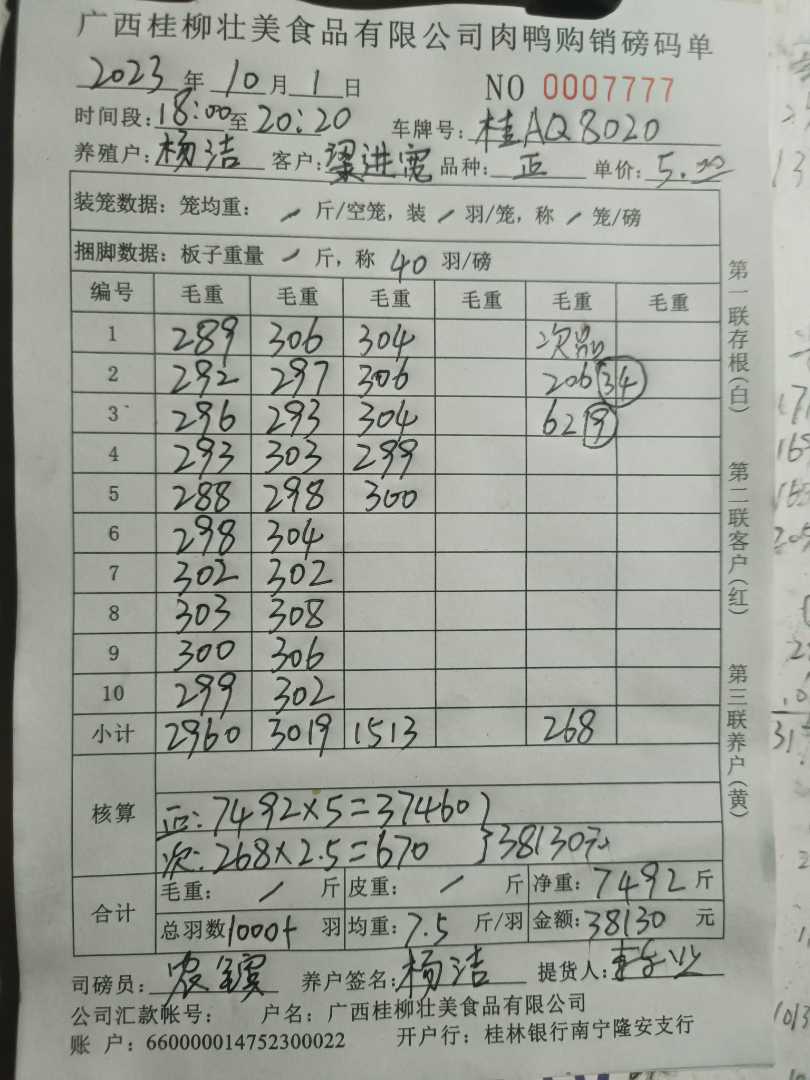 广西桂柳壮美食品有限公司肉鸭购销磅码单
2023年10月1日 NO 0007777
时间段:18:00至20:20 车牌号:桂AQ8020
养殖户:杨洁 客户:梁进宽 品种:正 单价:5.00
装笼数据:笼均重: / 斤/空笼,装 / 羽/笼,称 / 笼/磅
捆脚数据:板子重量 / 斤,称 40 羽/磅
编号 毛重 毛重 毛重 毛重 毛重 毛重
1 289 306 304 次品
2 292 297 306 206 34
3 296 293 304 62 9
4 293 303 299
5 288 298 300
6 298 304
7 302 302
8 303 308
9 300 306
10 299 302
小计 2960 3019 1513 268
核算
正:7492×5=37460
次:268×2.5=670 }38130元
合计
毛重: / 斤 皮重: / 斤 净重:7492斤
总羽数1000+羽 均重:7.5斤/羽 金额:38130元
司磅员: 养户签名:杨洁 提货人:
公司汇款帐号: 户名:广西桂柳壮美食品有限公司
账户:660000014752300022 开户行:桂林银行南宁隆安支行
第一联存根(白)
第二联客户(红)
第三联养户(黄)